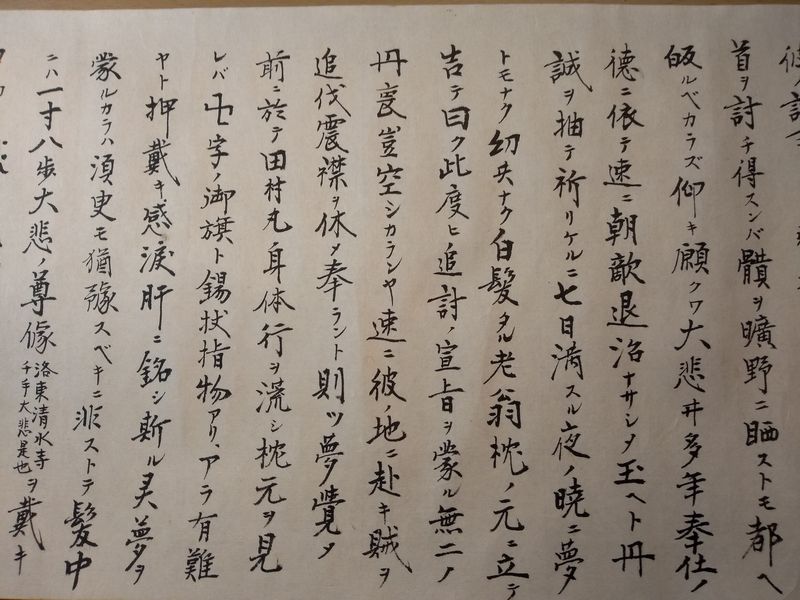 首ヲ討チ得スンバ髖ヲ曠野ニ晒ストモ都ヘ
皈ルベカラズ仰キ願クワ大悲ヰ多年奉仕ノ
徳ニ依テ速ニ朝敵退治ナサシメ玉ヘト丹
誠ヲ抽テ祈リケルニ七日満スル夜ノ暁ニ夢
トモナク幻共ナク白髪タル老翁枕ノ元ニ立テ
吉テ曰ク此度ヒ追討ノ宣旨ヲ蒙ル無二ノ
丹衷豈空シカランヤ速ニ彼ノ地ニ赴キ賊ヲ
追伐震襟ヲ休メ奉ラント則ツ夢覚メ
前ニ於テ田村丸身体行ヲ流シ枕元ヲ見
レバ卍字ノ御旗ト錫杖指物アリ、アラ有難
ヤト押戴キ感涙肝ニ銘シ斯ル灵夢ヲ
蒙ルカラハ須臾モ猶豫スベキニ非ストテ髪中
ニハ一寸八歩大悲ノ尊像洛東清水寺千手大悲是也ヲ戴キ